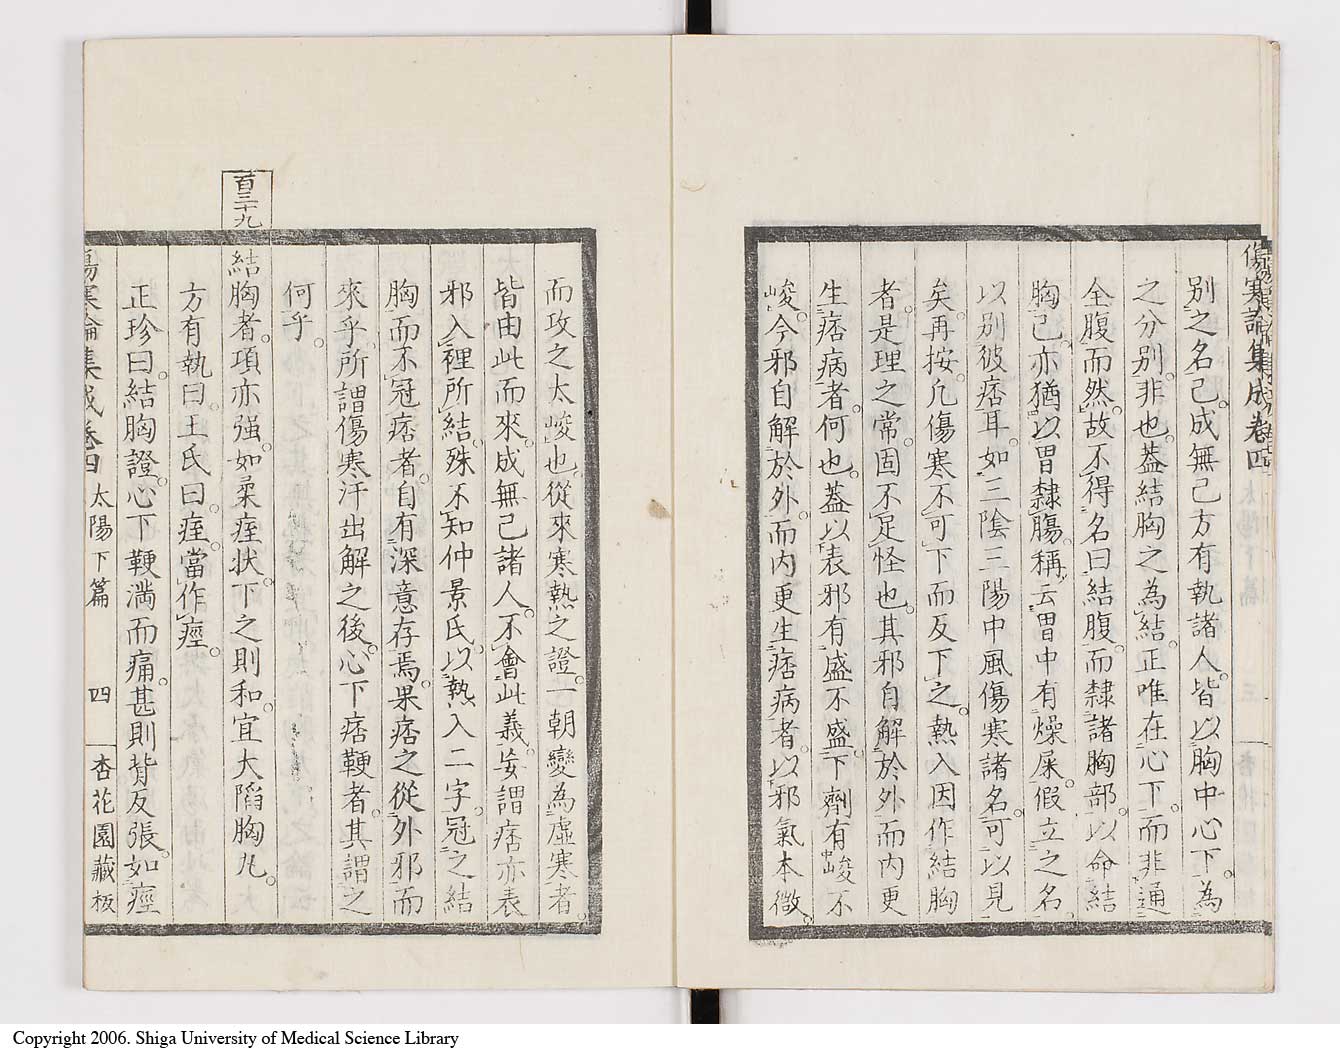 傷寒論集成卷四
別之名已成無己方有執諸人皆以胸中心下為
之分別非也蓋結胸之為結正唯在心下而非通
全腹而然故不得名曰結腹而隸諸胸部以命結
胸已亦猶以胃隸腸稱云胃中有燥屎假立之名
以別彼痞耳如三陰三陽中風傷寒諸名可以見
矣再按凡傷寒不可下而反下之熱入因作結胸
者是理之常固不足怪也其邪自解於外而内更
生痞病者何也蓋以表邪有盛不盛下劑有峻不
峻今邪自解於外而内更生痞病者以邪氣本微
而攻之太峻也從來寒熱之證一朝變為虛寒者
皆由此而來成無己諸人不會此義妄謂痞亦表
邪入裡所結殊不知仲景氏以熱入二字冠之結
胸而不冠痞者自有深意存焉果痞之從外邪而
來乎所謂傷寒汗出解之後心下痞鞕者其謂之
何乎
百三十九
結胸者項亦强如柔痓状下之則和宜大陷胸丸
方有執曰王氏曰痓當作痙
正珍曰結胸證心下鞕満而痛甚則背反張如痙
傷寒論集成卷四 太陽下篇 四 杏花園藏板
Copyright 2006. Shiga University of Medical Science Library